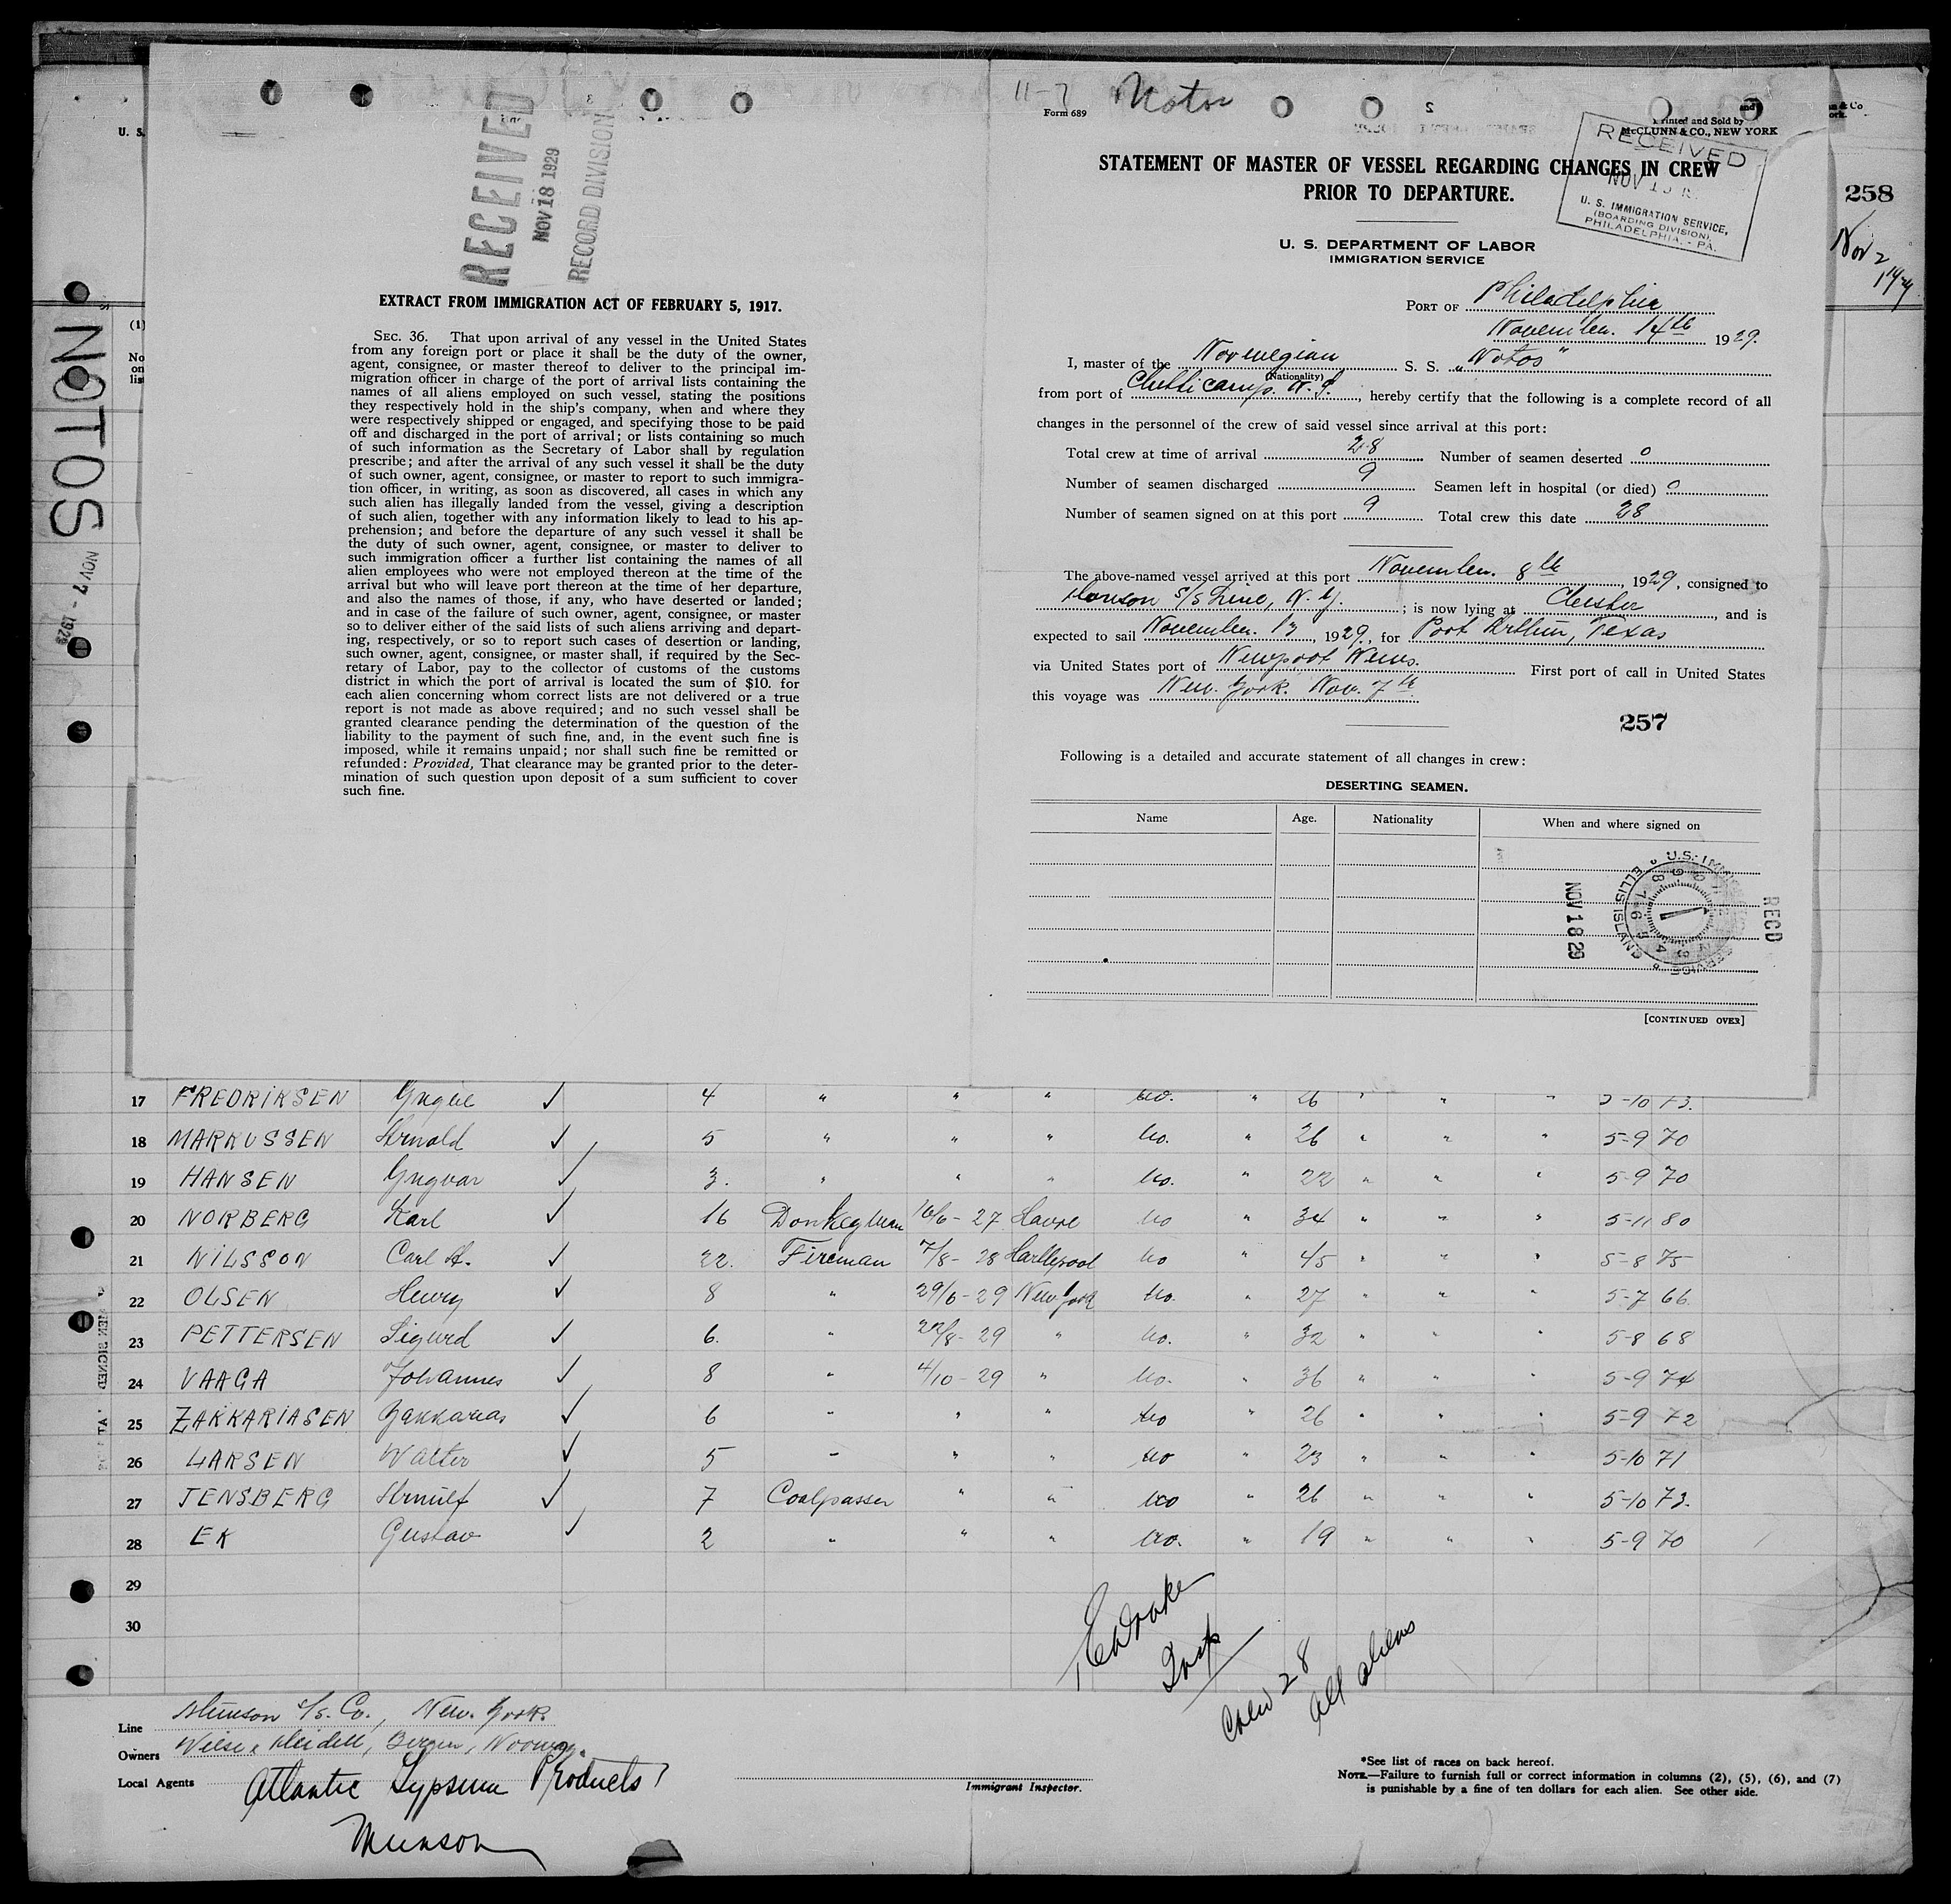 11-7 Notos
Form 689
Printed and Sold by
McCLUNN & CO., NEW YORK
RECEIVED
NOV 18 1929
RECORD DIVISION
RECEIVED
NOV
U. S. IMMIGRATION SERVICE,
(BOARDING DIVISION)
PHILADELPHIA. - PA.
U. S.
258
Nov
NOTOS
NOV 7 - 1929
(1)
No
on
list
EXTRACT FROM IMMIGRATION ACT OF FEBRUARY 5, 1917.
SEC. 36. That upon arrival of any vessel in the United States
from any foreign port or place it shall be the duty of the owner,
agent, consignee, or master thereof to deliver to the principal im-
migration officer in charge of the port of arrival lists containing the
names of all aliens employed on such vessel, stating the positions
they respectively hold in the ship's company, when and where they
were respectively shipped or engaged, and specifying those to be paid
off and discharged in the port of arrival; or lists containing so much
of such information as the Secretary of Labor shall by regulation
prescribe; and after the arrival of any such vessel it shall be the duty
of such owner, agent, consignee, or master to report to such immigra-
tion officer, in writing, as soon as discovered, all cases in which any
such alien has illegally landed from the vessel, giving a description
of such alien, together with any information likely to lead to his ap-
prehension; and before the departure of any such vessel it shall be
the duty of such owner, agent, consignee, or master to deliver to
such immigration officer a further list containing the names of all
alien employees who were not employed thereon at the time of the
arrival but who will leave port thereon at the time of her departure,
and also the names of those, if any, who have deserted or landed;
and in case of the failure of such owner, agent, consignee, or master
so to deliver either of the said lists of such aliens arriving and depart-
ing, respectively, or so to report such cases of desertion or landing,
such owner, agent, consignee, or master shall, if required by the Sec-
retary of Labor, pay to the collector of customs of the customs
district in which the port of arrival is located the sum of $10. for
each alien concerning whom correct lists are not delivered or a true
report is not made as above required; and no such vessel shall be
granted clearance pending the determination of the question of the
liability to the payment of such fine, and, in the event such fine is
imposed, while it remains unpaid; nor shall such fine be remitted or
refunded: Provided, That clearance may be granted prior to the deter-
mination of such question upon deposit of a sum sufficient to cover
such fine.
STATEMENT OF MASTER OF VESSEL REGARDING CHANGES IN CREW
PRIOR TO DEPARTURE.
U. S. DEPARTMENT OF LABOR
IMMIGRATION SERVICE
PORT OF Philadelphia
November. 14th 1929.
I, master of the Norwegian S. S. "Notos"
(Nationality)
from port of Chetticamp. N. S., hereby certify that the following is a complete record of all
changes in the personnel of the crew of said vessel since arrival at this port:
Total crew at time of arrival 28 Number of seamen deserted 0
Number of seamen discharged 9 Seamen left in hospital (or died) 0
Number of seamen signed on at this port 9 Total crew this date 28
The above-named vessel arrived at this port November. 8th, 1929, consigned to
Munson S/S Line, N. Y.; is now lying at Chester, and is
expected to sail November. 13, 1929, for Port Arthur, Texas
via United States port of Newport News. First port of call in United States
this voyage was New. York. Nov. 7th.
257
Following is a detailed and accurate statement of all changes in crew:
DESERTING SEAMEN.
Name Age. Nationality When and where signed on
RECD
NOV 18 29
U.S. IMMIGRATION SERVICE ELLIS ISLAND
[CONTINUED OVER]
17 FREDRIKSEN Yngve ✓ 4 " " " no. " 26 " " " 5-10 73.
18 MARKUSSEN Arnold ✓ 5 " " " no. " 26 " " " 5-9 70
19 HANSEN Yngvar ✓ 3. " " " no. " 22 " " " 5-9 70
20 NORBERG Karl ✓ 16 Donkeyman 16/6-27 Havre no " 34 " " " 5-11 80
21 NILSSON Carl A. ✓ 22. Fireman 7/8-28 Hartlepool no " 45 " " " 5-8 75
22 OLSEN Henry ✓ 8 " 29/6-29 New York no. " 27 " " " 5-7 66.
23 PETTERSEN Sigurd ✓ 6. " 22/8-29 " no. " 32 " " " 5-8 68
24 VAAGA Johannes ✓ 8 " 4/10-29 " no. " 36 " " " 5-9 74
25 ZAKKARIASEN Zakkarias ✓ 6 " " " no " 26 " " " 5-9 72
26 LARSEN Walter ✓ 5 " " " no " 23 " " " 5-10 71
27 JENSBERG Arnulf ✓ 7 Coalpasser " " no " 26 " " " 5-10 73.
28 EK Gustav ✓ 2 " " " no. " 19 " " " 5-9 70
29
30
Insp
Crew 28
all aliens
Line Munson S/S. Co., New. York.
Owners Bergen, Norway.
Local Agents Atlantic Gypsum Products
Munson
Immigrant Inspector.
*See list of races on back hereof.
NOTE.—Failure to furnish full or correct information in columns (2), (5), (6), and (7)
is punishable by a fine of ten dollars for each alien. See other side.